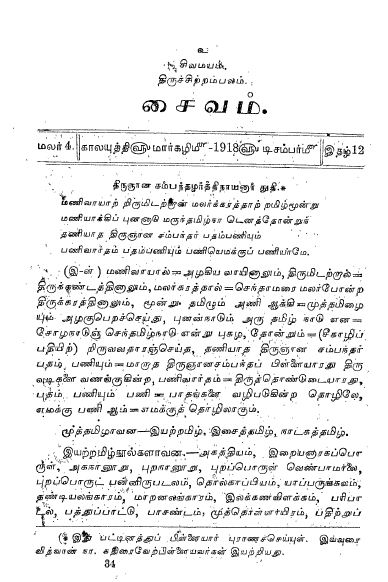 உ
சிவமயம்.
திருச்சிற்றம்பலம்.
சைவம்.
மலர் 4. காலயுத்தி௵ மார்கழி௴-1918௵ டிசம்பர்௴ இதழ் 12
திருஞான சம்பந்தமூர்த்திநாயனார் துதி.*
மணிவாயாற் றிருமிடற்றான் மலர்க்கரத்தாற் றமிழ்மூன்று
மணியாக்கிப் புனனாடு மருந்தமிழ்நா டெனத்தோன்றுக்
தணியாத திருஞான சம்பந்தர் பதம்பணியும்
பணிவார்தம் பதம்பணியும் பணியெமக்குப் பணியாமே.
(இ-ள் ) மணிவாயால்=அழகிய வாயினாலும், திருமிடற்றால்=
திருக்கண்டத்தினாலும், மலர்கரத்தால்=செந்தாமரை மலர்போன்ற
திருக்கரத்தினாலும், மூன்று தமிழும் அணி ஆக்கி=முத்தமிழை
யும் அழகுபெறச்செய்து, புனன்நாடும் அரு தமிழ் நாடு என=
சோழநாடுஞ் செந்தமிழ்நாடு என்று புகழ, தோன்றும்=(சீகாழிப்
பதியிற்) திருவவதாரஞ்செய்த, தணியாத திருஞான சம்பந்தர்
பதம் பணியும்=மாருத திருஞானசம்பந்தப் பிள்ளையாரது திரு
வடிகளை வணங்குகின்ற, பணிவார்தம்=திருத்தொண்டடையாரது,
பதம் பணியும் பணி=பாதங்களை வழிபடுகின்ற தொழிலே,
எமக்கு பணி ஆம்=எமக்குத் தொழிலாகும்.
முத்தமிழாவன—இயற்றமிழ், இசைத்தமிழ், நாடகத்தமிழ்.
இயற்றமிழ்நூல்களாவன.—அகத்தியம், இறையனாரகப்பொ
ருள், அகநானூறு, புறநானூறு, புறப்பொருள் வெண்பாமாலை,
புறப்பொருட் பன்னிருபடலம், தொல்காப்பியம், யாப்பருங்கலம்,
தண்டியலங்காரம், மாறனலங்காரம், இலக்கணவிளக்கம், பரிபா
டல், பத்துப்பாட்டு, பாசண்டம், முத்தொள்ளாயிரம், பதிற்றுப்
( இது பட்டினத்துப் பிள்ளையார் புராணச்செய்யுள். இவ்வுரை
வித்வான் கா. கதிரைவேற்பிள்ளையவர்கள் இயற்றியது.
34